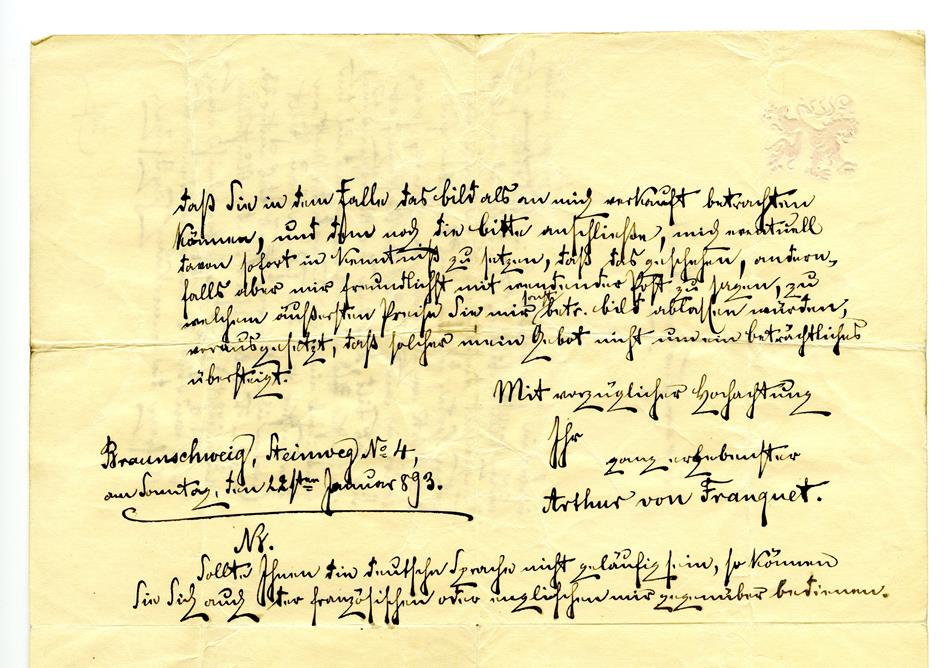 daß Sie in dem Falle das bild als an mich verkauft betrachten
können, und dem noch die bitte anschließe, mich eventuell
davon sofort in Kenntniß zu setzen, daß das geschehen, andern-
falls aber mir freundlichst mit wendender Post zu sagen, zu
welchem äußersten Preise Sie mir sonst betr. bild ablassen würden,
vorausgesetzt, daß solcher mein Gebot nicht um ein beträchtliches
übersteigt.
Mit vorzüglicher Hochachtung
Ihr
ganz ergebenster
Arthur von Franquet.
Braunschweig, Steinweg No 4,
am Sonntag, den 22sten Januar 893.
Nb.
Sollte Ihnen die deutsche Sprache nicht geläufig sein, so können
Sie Sich auch der französischen oder englischen mir gegenüber bedienen.